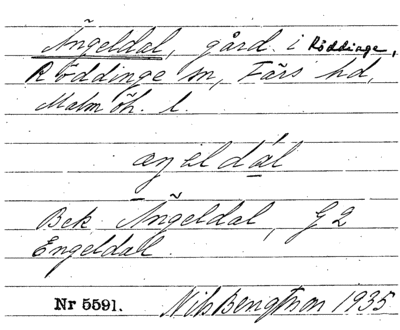 Ängeldal, gård i Röddinge,
Röddinge sn, Färs hd,
Malmöh. l.
æŋeldál
Bek Ängeldal, G2
Engeldal.
Nr 5591. Nils Bengtson 1935